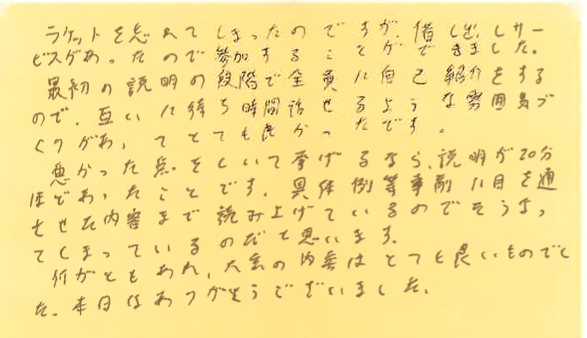 ラケットを忘れてしまったのですが、借し出しサー
ビスがあったので参加することができました。
最初の説明の段階で全員に自己紹介をする
ので、互いに待ち時間話せるような雰囲気づ
くりがあってとても良かったです。
悪かった点をしいて挙げるなら、説明が20分
ほどあったことです。具体例等事前に目を通
させた内容まで読み上げているのでそうなっ
てしまっているのだと思います。
何がともあれ、大会の内容はとても良いものでし
た。本日はありがとうございました。